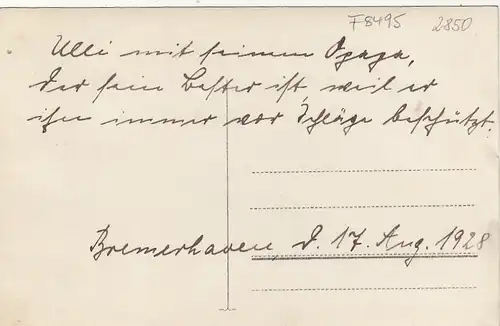 F8495 2850
Ulli mit seinem Opapa,
der sein Bester ist, weil er
ihn immer vor Schläge beschützt.
Bremerhaven, d. 17. Aug. 1928